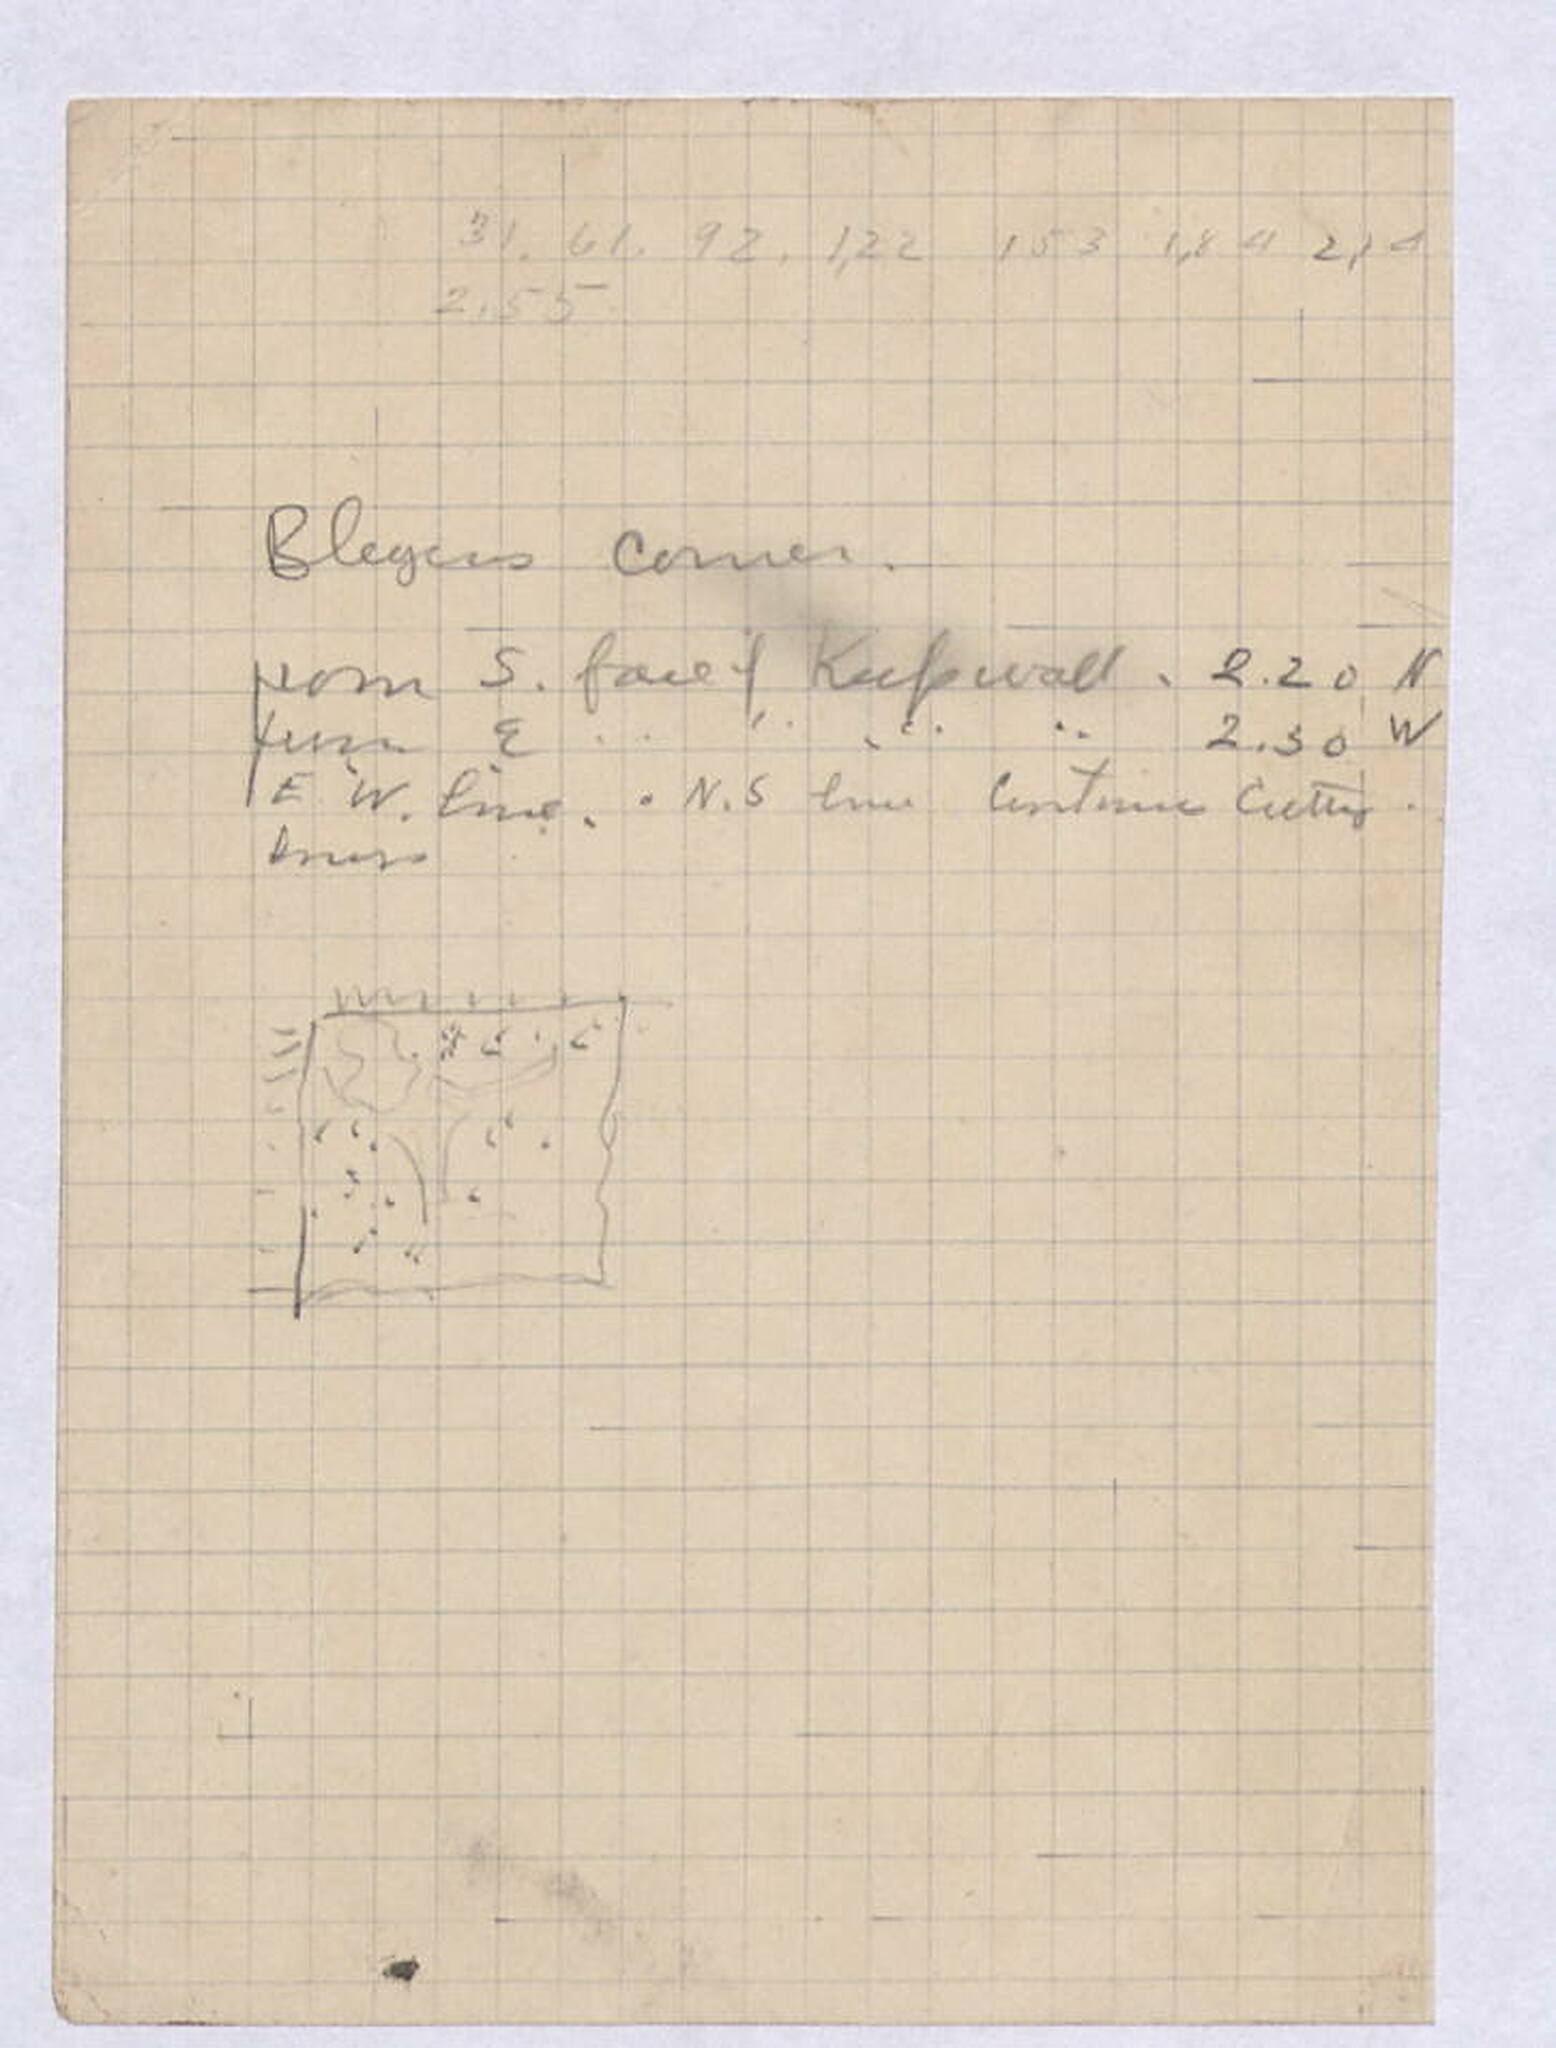 31. 61. 92. 1,22 153 1,84 2,14
2.55
Blegens Corner.
from S. face of Keepwall . 2.20 N
from E " " " " 2.30 W
E. W. line. . N.S line Continue Cutting .